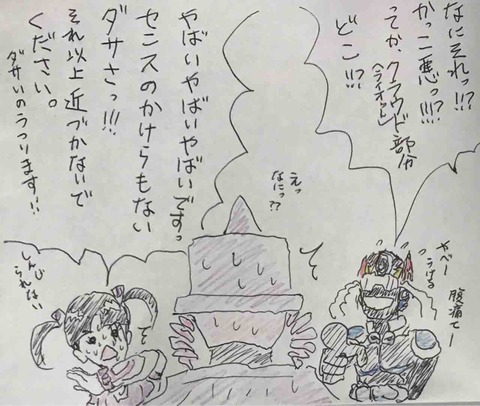 なにそれっ!!?
かっこ悪っ!!!?
ってか、クラウド部分
どこ!!?
やばいやばいやばいですっ
センスのかけらもない
ダサさっ!!!
それ以上近づかないで
ください。
ダサいのうつります!!
えっ
なにっ!?
ヤベー
うける
腹痛てー
しんじ
られない